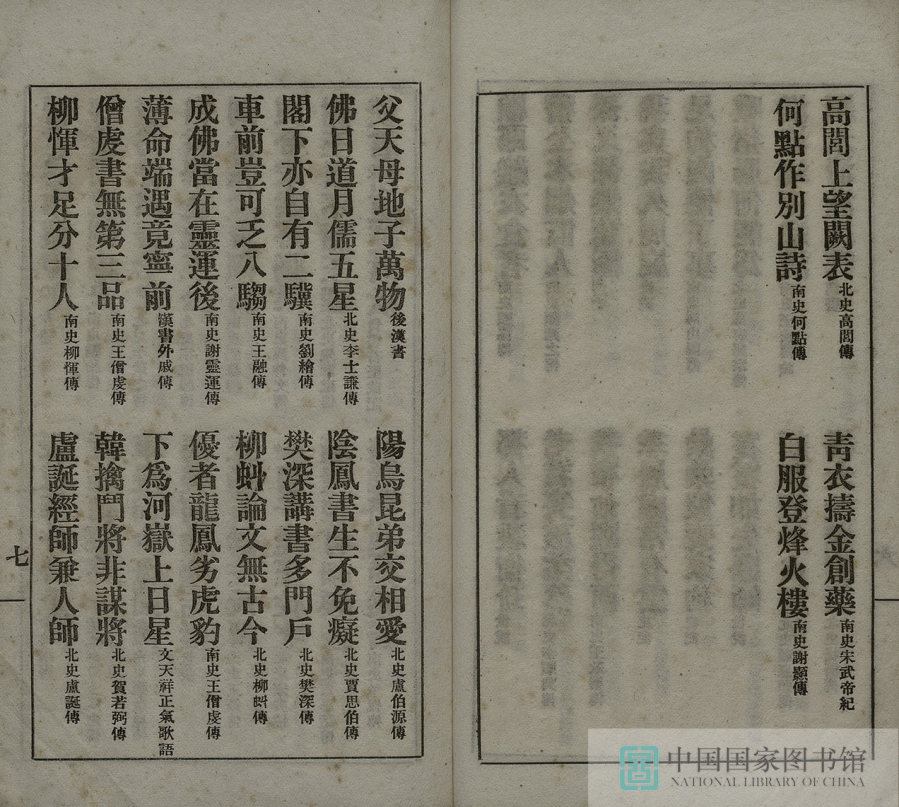 高閭上望闕表 北史高閭傳 青衣擣金創藥 南史宋武帝紀
何點作別山詩 南史何點傳 白服登烽火樓 南史謝顥傳
父天母地子萬物 後漢書 陽烏昆弟交相愛 北史盧伯源傳
佛日道月儒五星 北史李士謙傳 陰鳳書生不免癡 北史賈思伯傳
閣下亦自有二驥 南史劉繪傳 樊深講書多門戶 北史樊深傳
車前豈可乏八騶 南史王融傳 柳虯論文無古今 北史柳虯傳
成佛當在靈運後 南史謝靈運傳 優者龍鳳劣虎豹 南史王僧虔傳
薄命端遇竟寧前 漢書外戚傳 下爲河嶽上日星 文天祥正氣歌語
僧虔書無第三品 南史王僧虔傳 韓擒鬥將非謀將 北史賀若弼傳
柳惲才足分十人 南史柳惲傳 盧誕經師兼人師 北史盧誕傳
七
中国国家图书馆
NATIONAL LIBRARY OF CHINA